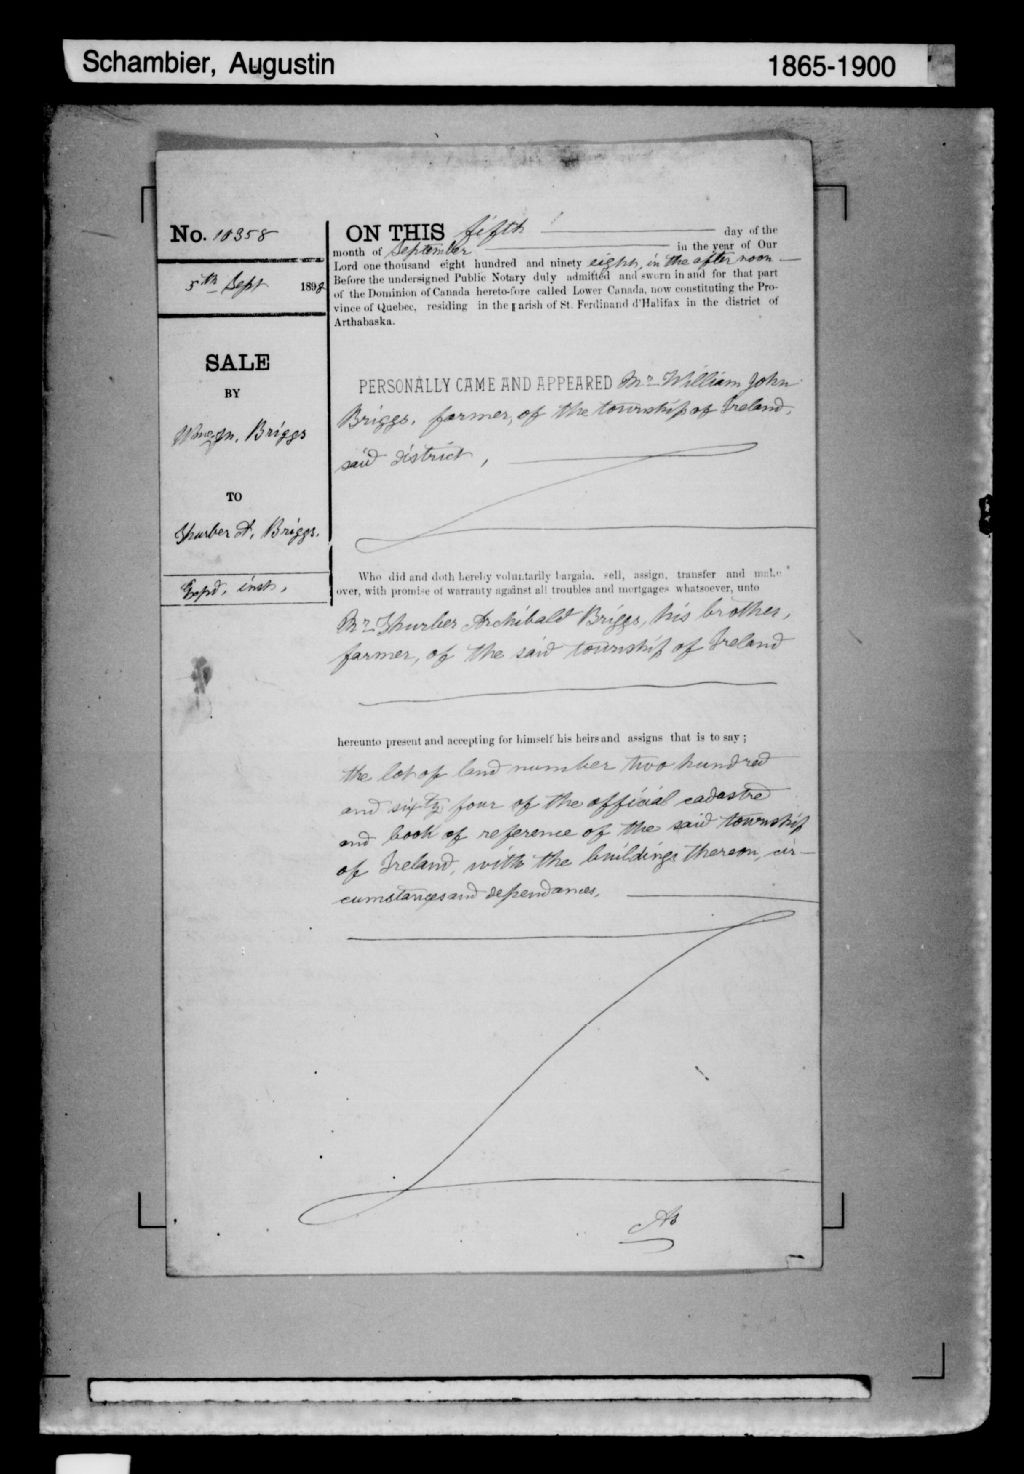 Schambier, Augustin
1865-1900
No. 10358
5th Sept 1898
SALE
BY
Wm Jn. Briggs
TO
Thurber A. Briggs.
Expd. inst.
ON THIS fifth day of the
month of September in the year of Our
Lord one thousand eight hundred and ninety eight, in the after noon
Before the undersigned Public Notary duly admitted and sworn in and for that part
of the Dominion of Canada hereto-fore called Lower Canada, now constituting the Pro-
vince of Quebec, residing in the parish of St. Ferdinand d'Halifax in the district of
Arthabaska.
PERSONALLY CAME AND APPEARED Mr William John
Briggs, farmer, of the township of Ireland,
said district,
Who did and doth hereby voluntarily bargain, sell, assign, transfer and make
over, with promise of warranty against all troubles and mortgages whatsoever, unto
Mr Thurber Archibald Briggs, his brother,
farmer, of the said township of Ireland
hereunto present and accepting for himself his heirs and assigns that is to say ;
the lot of land number two hundred
and sixty four of the official cadastre
and book of reference of the said township
of Ireland, with the buildings thereon, cir-
cumstances and dependances.